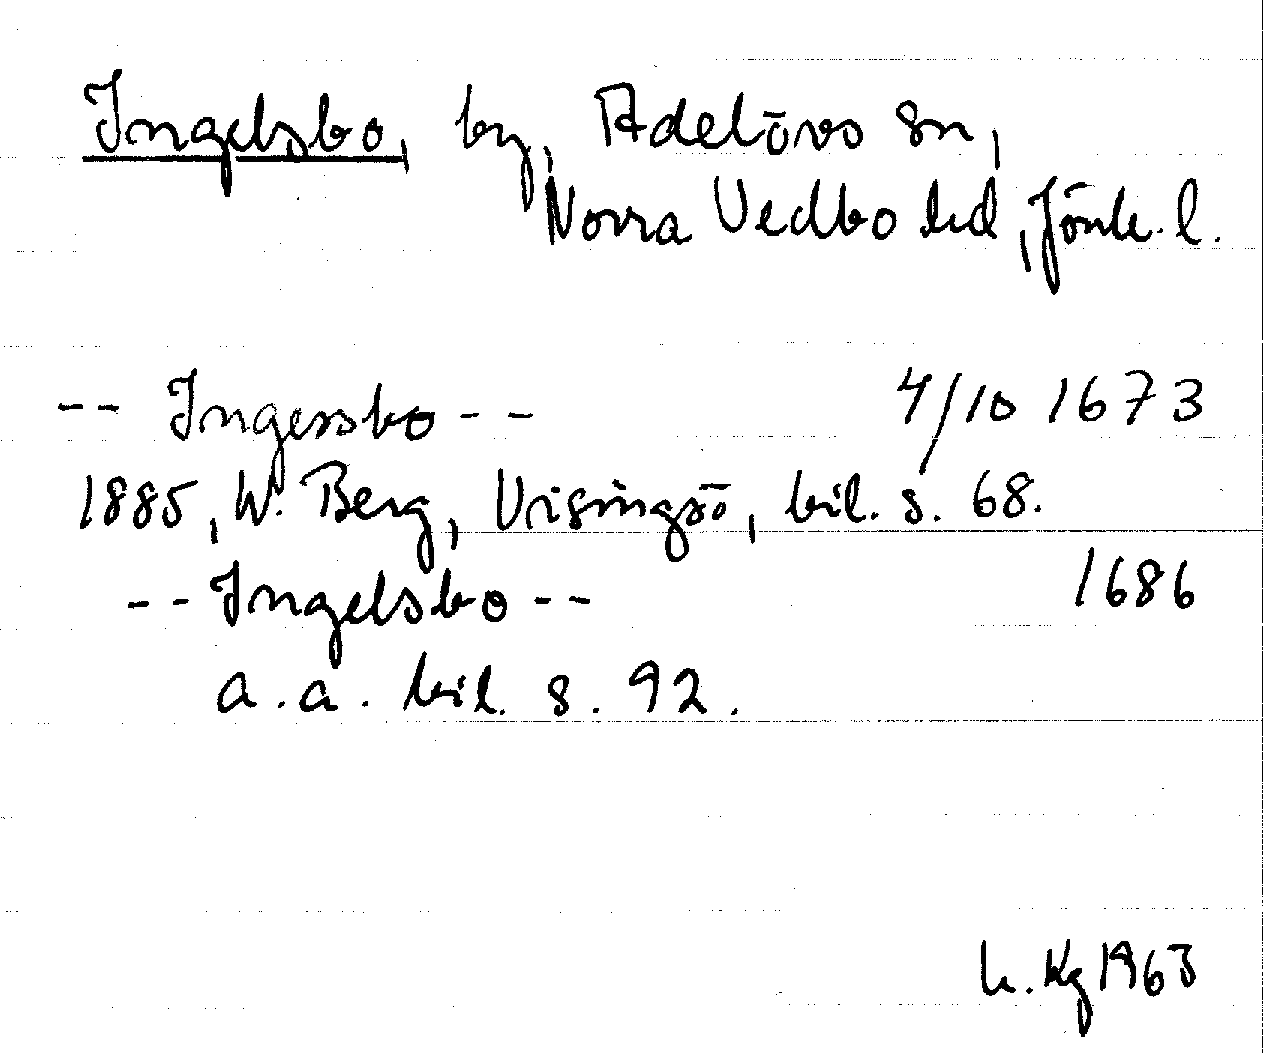 Ingelsbo, by, Adelövs sn,
Norra Vedbo hd, Jönk. l.
-- Ingessbo -- 4/10 1673
1885, W. Berg, Visingsö, bil. s. 68.
-- Ingelsbo -- 1686
a.a. bil. s. 92.
L. Kg 1963